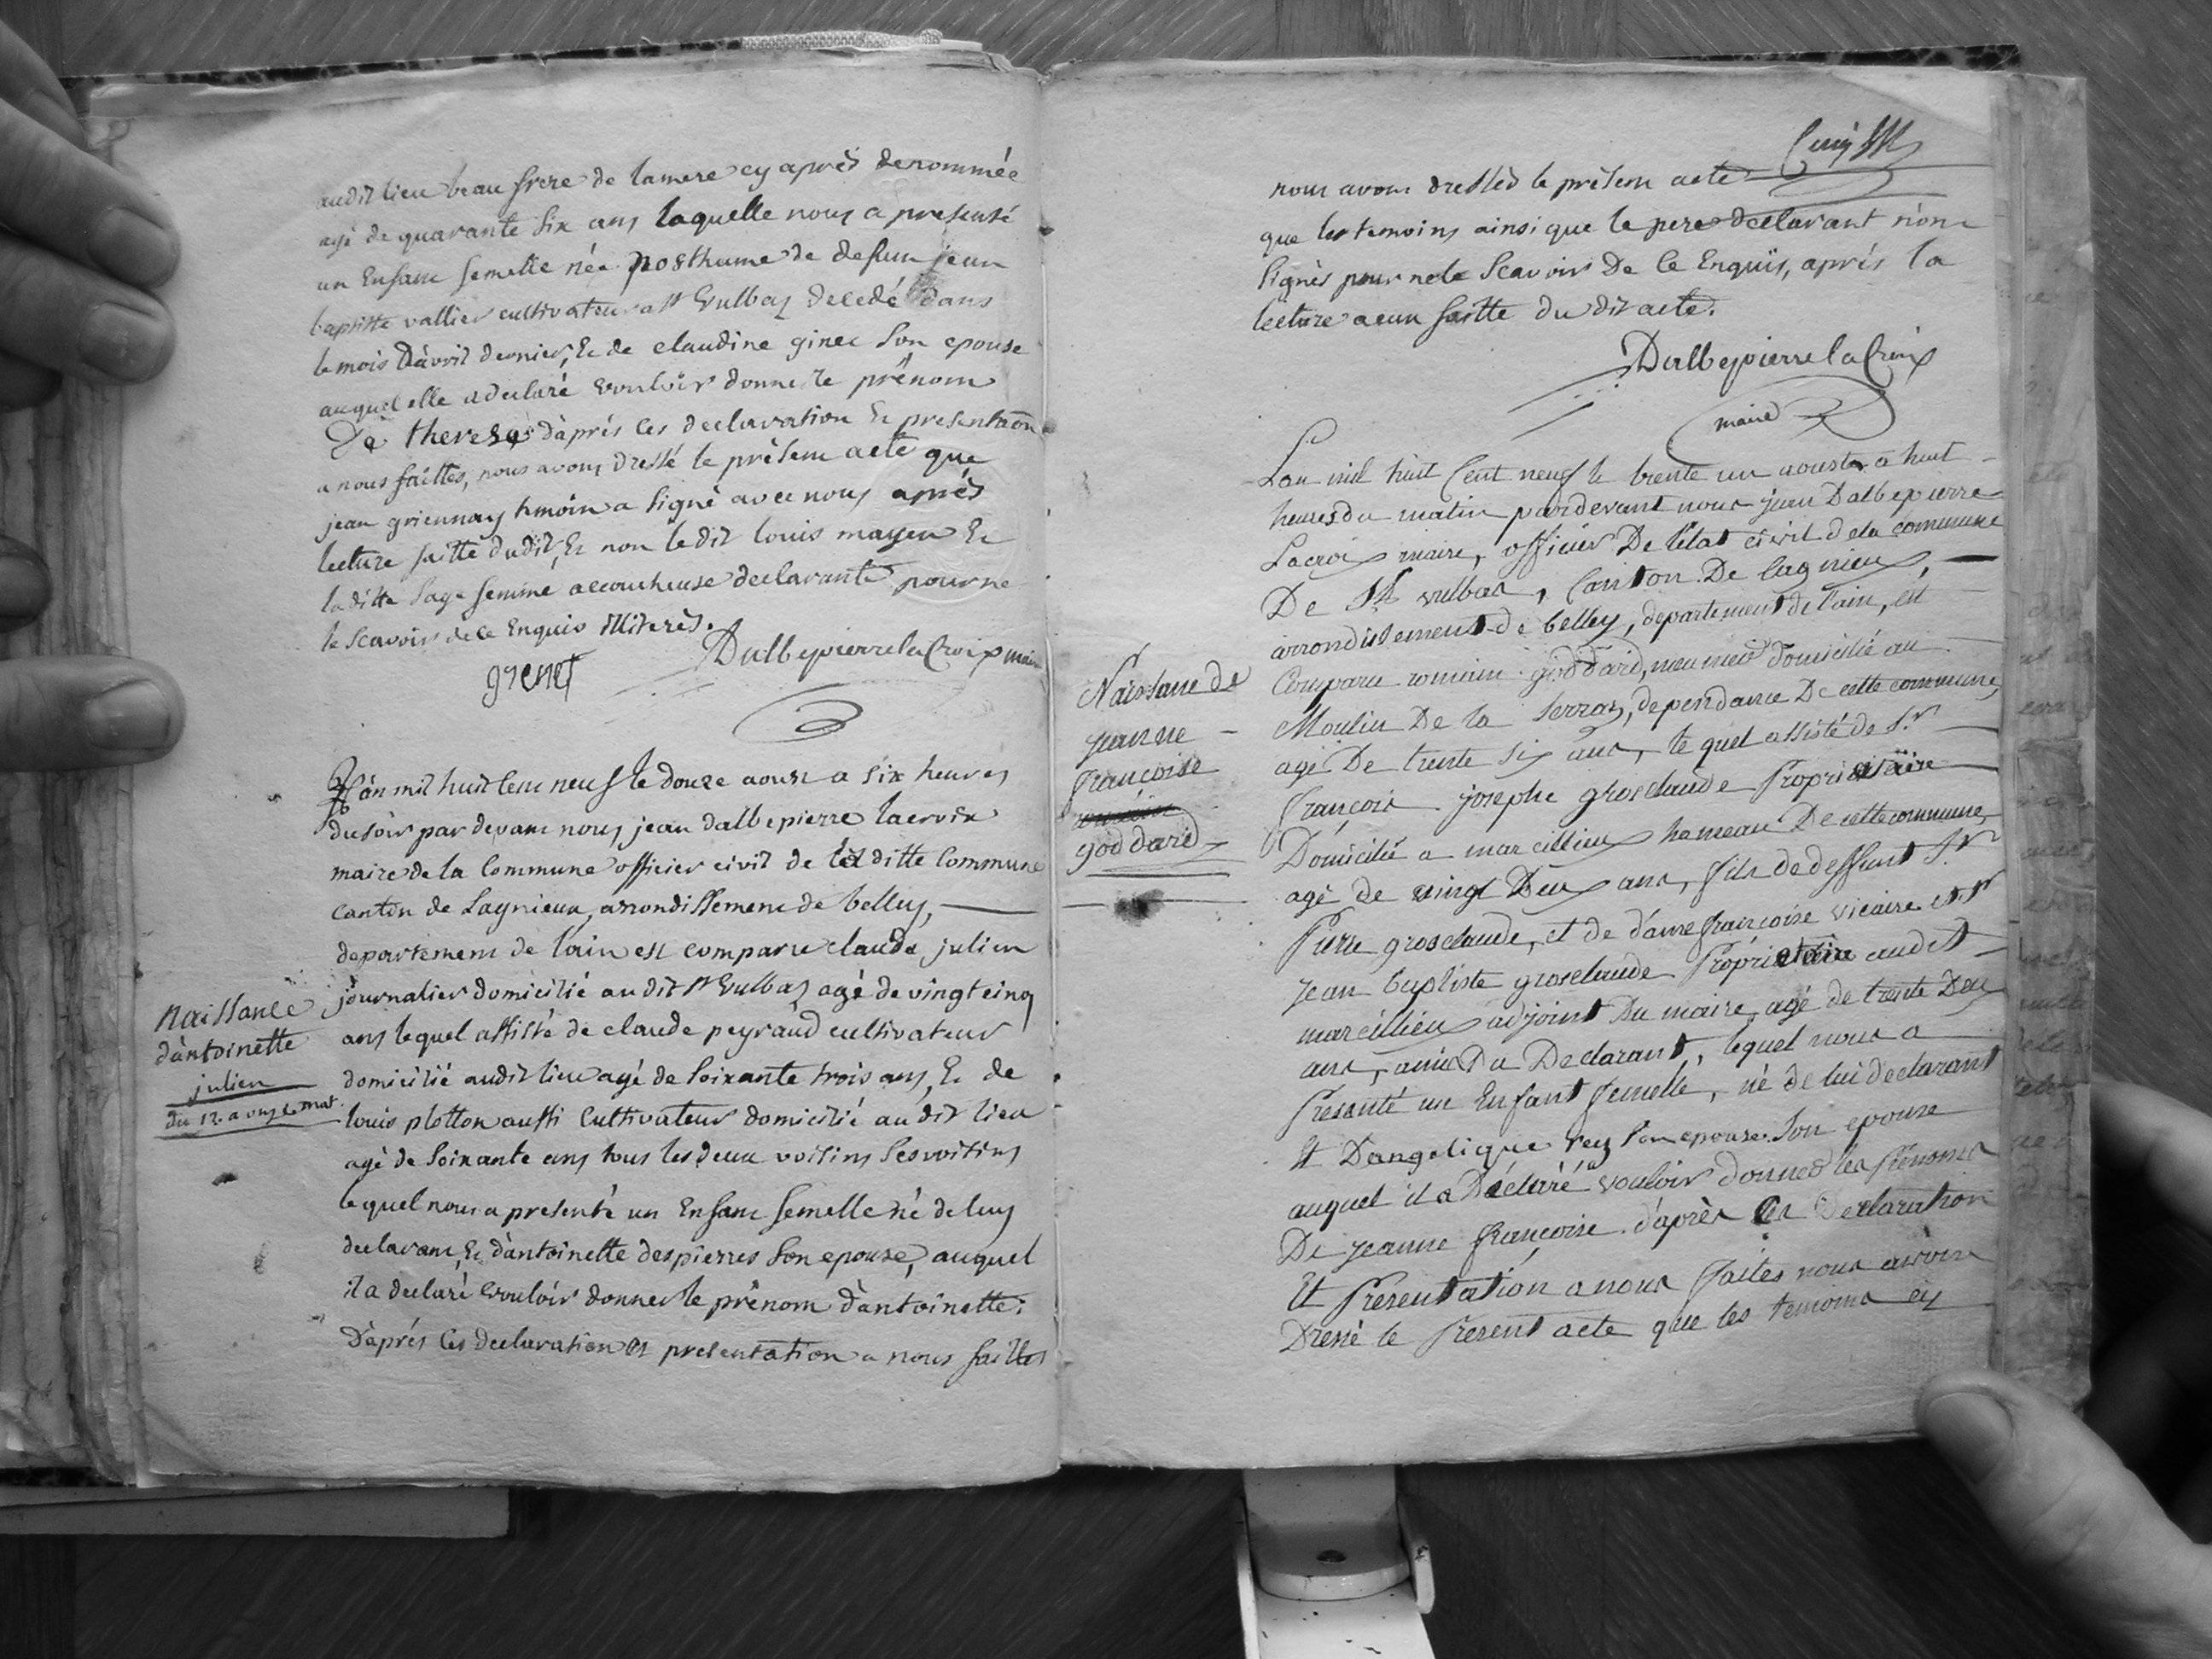 audit lieu beau frere de la mere cy après denommée
agé de quarante six ans laquelle nous a presenté
un Enfant femelle née posthume de defun jean
baptiste vallier cultivateur a St Vulbas decedé dans
le mois D'avril dernier, Et de claudine ginet son epouse
auquel elle a declaré vouloir donner le prénom
De therese d'après ces declaration Et presentaōn
a nous faittes, nous avons dressé le présent acte que
jean griennay temoin a signé avec nous après
lecture faitte dudit, Et non le dit louis mayeu Et
la ditte sage femme accoucheuse declarante pour ne
le scavoir de ce Enquis illiterès.
grenet Dalbepierre la Croix maire
L'an mil huit cent neuf le douze aoust a six heures
du soir par devant nous, jean dalbepierre lacroix
maire de la Commune officier civil de la ditte Commune
canton de Lagnieux, arrondissement de belley,
departement de lain est comparu claude julien
journalier domicilié au dit St Vulbas agé de vingt cinq
Naissance
d'antoinette
julien
du 12 a onz h mat.
ans lequel assisté de claude peyraud cultivateur
domicilié audit lieu agé de soixante trois ans, Et de
louis plotton aussi Cultivateur domicilié au dit lieu
agé de soixante ans tous les deux voisins ses voisins
lequel nous a presenté un Enfant femelle né de luy
declarant, Et d'antoinette despierres son epouse, auquel
il a declaré vouloir donner le prénom d'antoinette;
D'après ces declaration Et presentation a nous faittes
nous avons dresséd le présent acte
que les temoins ainsi que le pere declarant n'ont
signés pour ne le scavoir De ce Enquis, après la
lecture a eux faitte du dit acte.
Dalbepierre la Croix
maire
L'an mil huit Cent neuf le trente un aoust a huit
heures du matin pardevant nous jean Dalbepierre
Lacroix maire, officier De l'état civil de la commune
De St vulbas, Canton De lagnieux,
arrondissement de belley, departement de l'ain, est
Comparu romain goddard, meunier domicilié au
Moulin De la serraz, dependance De cette commune,
agé De trente six ans, le quel assisté de Sr
françois josephe grosclaude Propriétaire
Domicilié a marcillieux hameau De cette commune
agé de vingt Deux ans, fils de deffunt Sr
Pierre grosclaude, et de dame françoise vicaire et Sr
jean baptiste grosclaude Propriétaire audit
marcillieux adjoint Du maire, agé de trente Deux
ans, amis Du Declarant, lequel nous a
Presenté un Enfant femelle, né de lui declarant
Et D'angelique rey son epouse son epouse
auquel il a Déclaré vouloir donner les prénoms
De jeanne françoise d'après Ces Declaration
Et Presentation a nous faites nous avons
Dressé le Present acte que les temoins cy
Naissance de
jeanne
françoise
romain
goddard